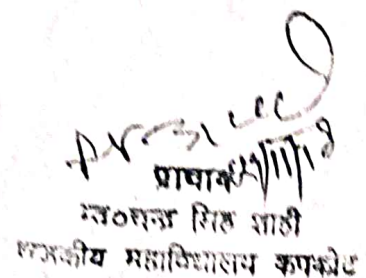 प्राचार्य
स्व०चन्द्र सिंह शाही
राजकीय महाविद्यालय कपकोट